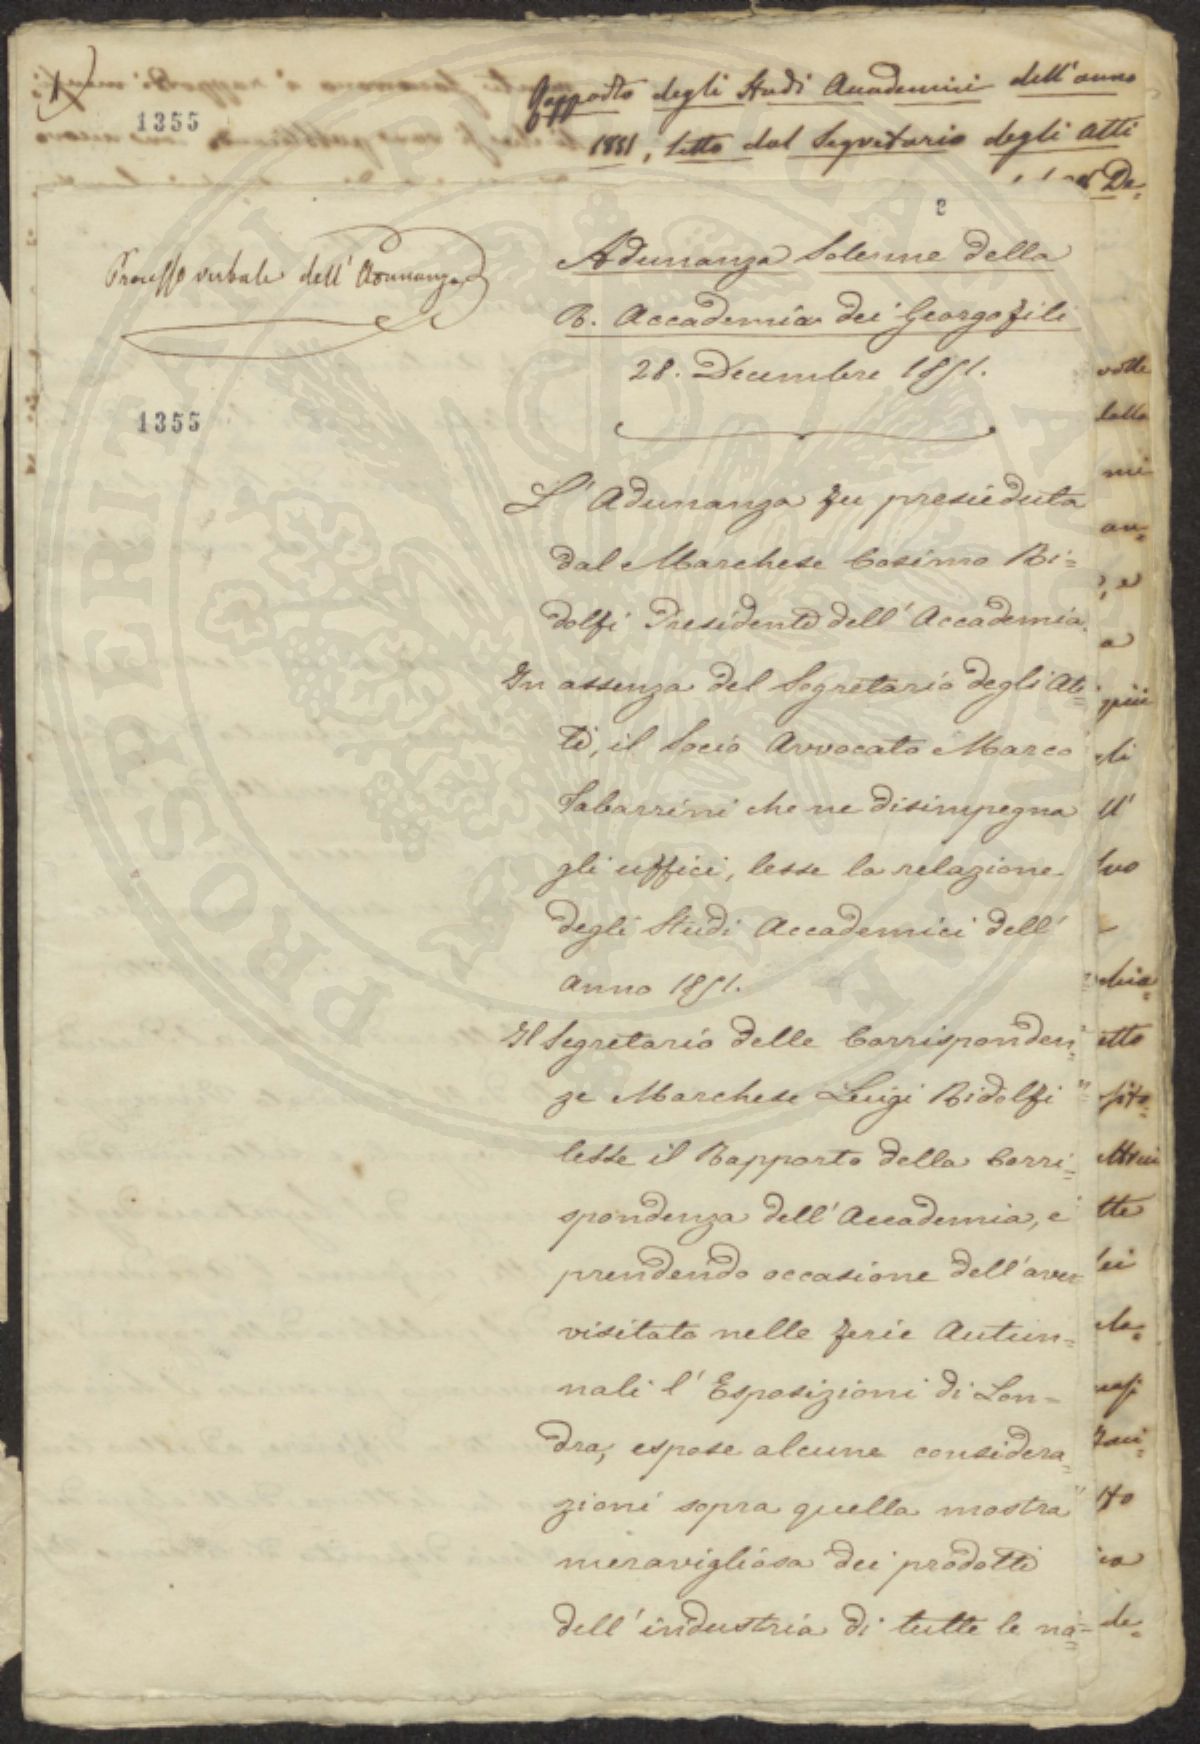 1)
1355
Rapporto degli Studi Accademici dell'anno
1851, letto dal Segretario degli Atti
De=
2
Processo verbale dell'Adunanza
1355
Adunanza Solenne della
R. Accademia dei Georgofili
28. Decembre 1851.
L'Adunanza fu presieduta
dal Marchese Cosimo Ri=
dolfi Presidente dell'Accademia.
In assenza del Segretario degli At=
ti, il Socio Avvocato Marco
Tabarrini che ne disimpegna
gli uffici, lesse la relazione
degli Studi Accademici dell'
anno 1851.
Il Segretario delle Corrisponden=
ze Marchese Luigi Ridolfi
lesse il Rapporto della Corri=
spondenza dell'Accademia, e
prendendo occasione dell'aver
visitato nelle ferie Autun=
nali l'Esposizioni di Lon=
dra, espose alcune considera=
zioni sopra quella mostra
meravigliosa dei prodotti
dell'industria di tutte le na=
volte
dalla
mi
an=
a
più
di
ll'
etto
tte
ito
de=
PROSPERITATI PUBLICAE AUGENDAE